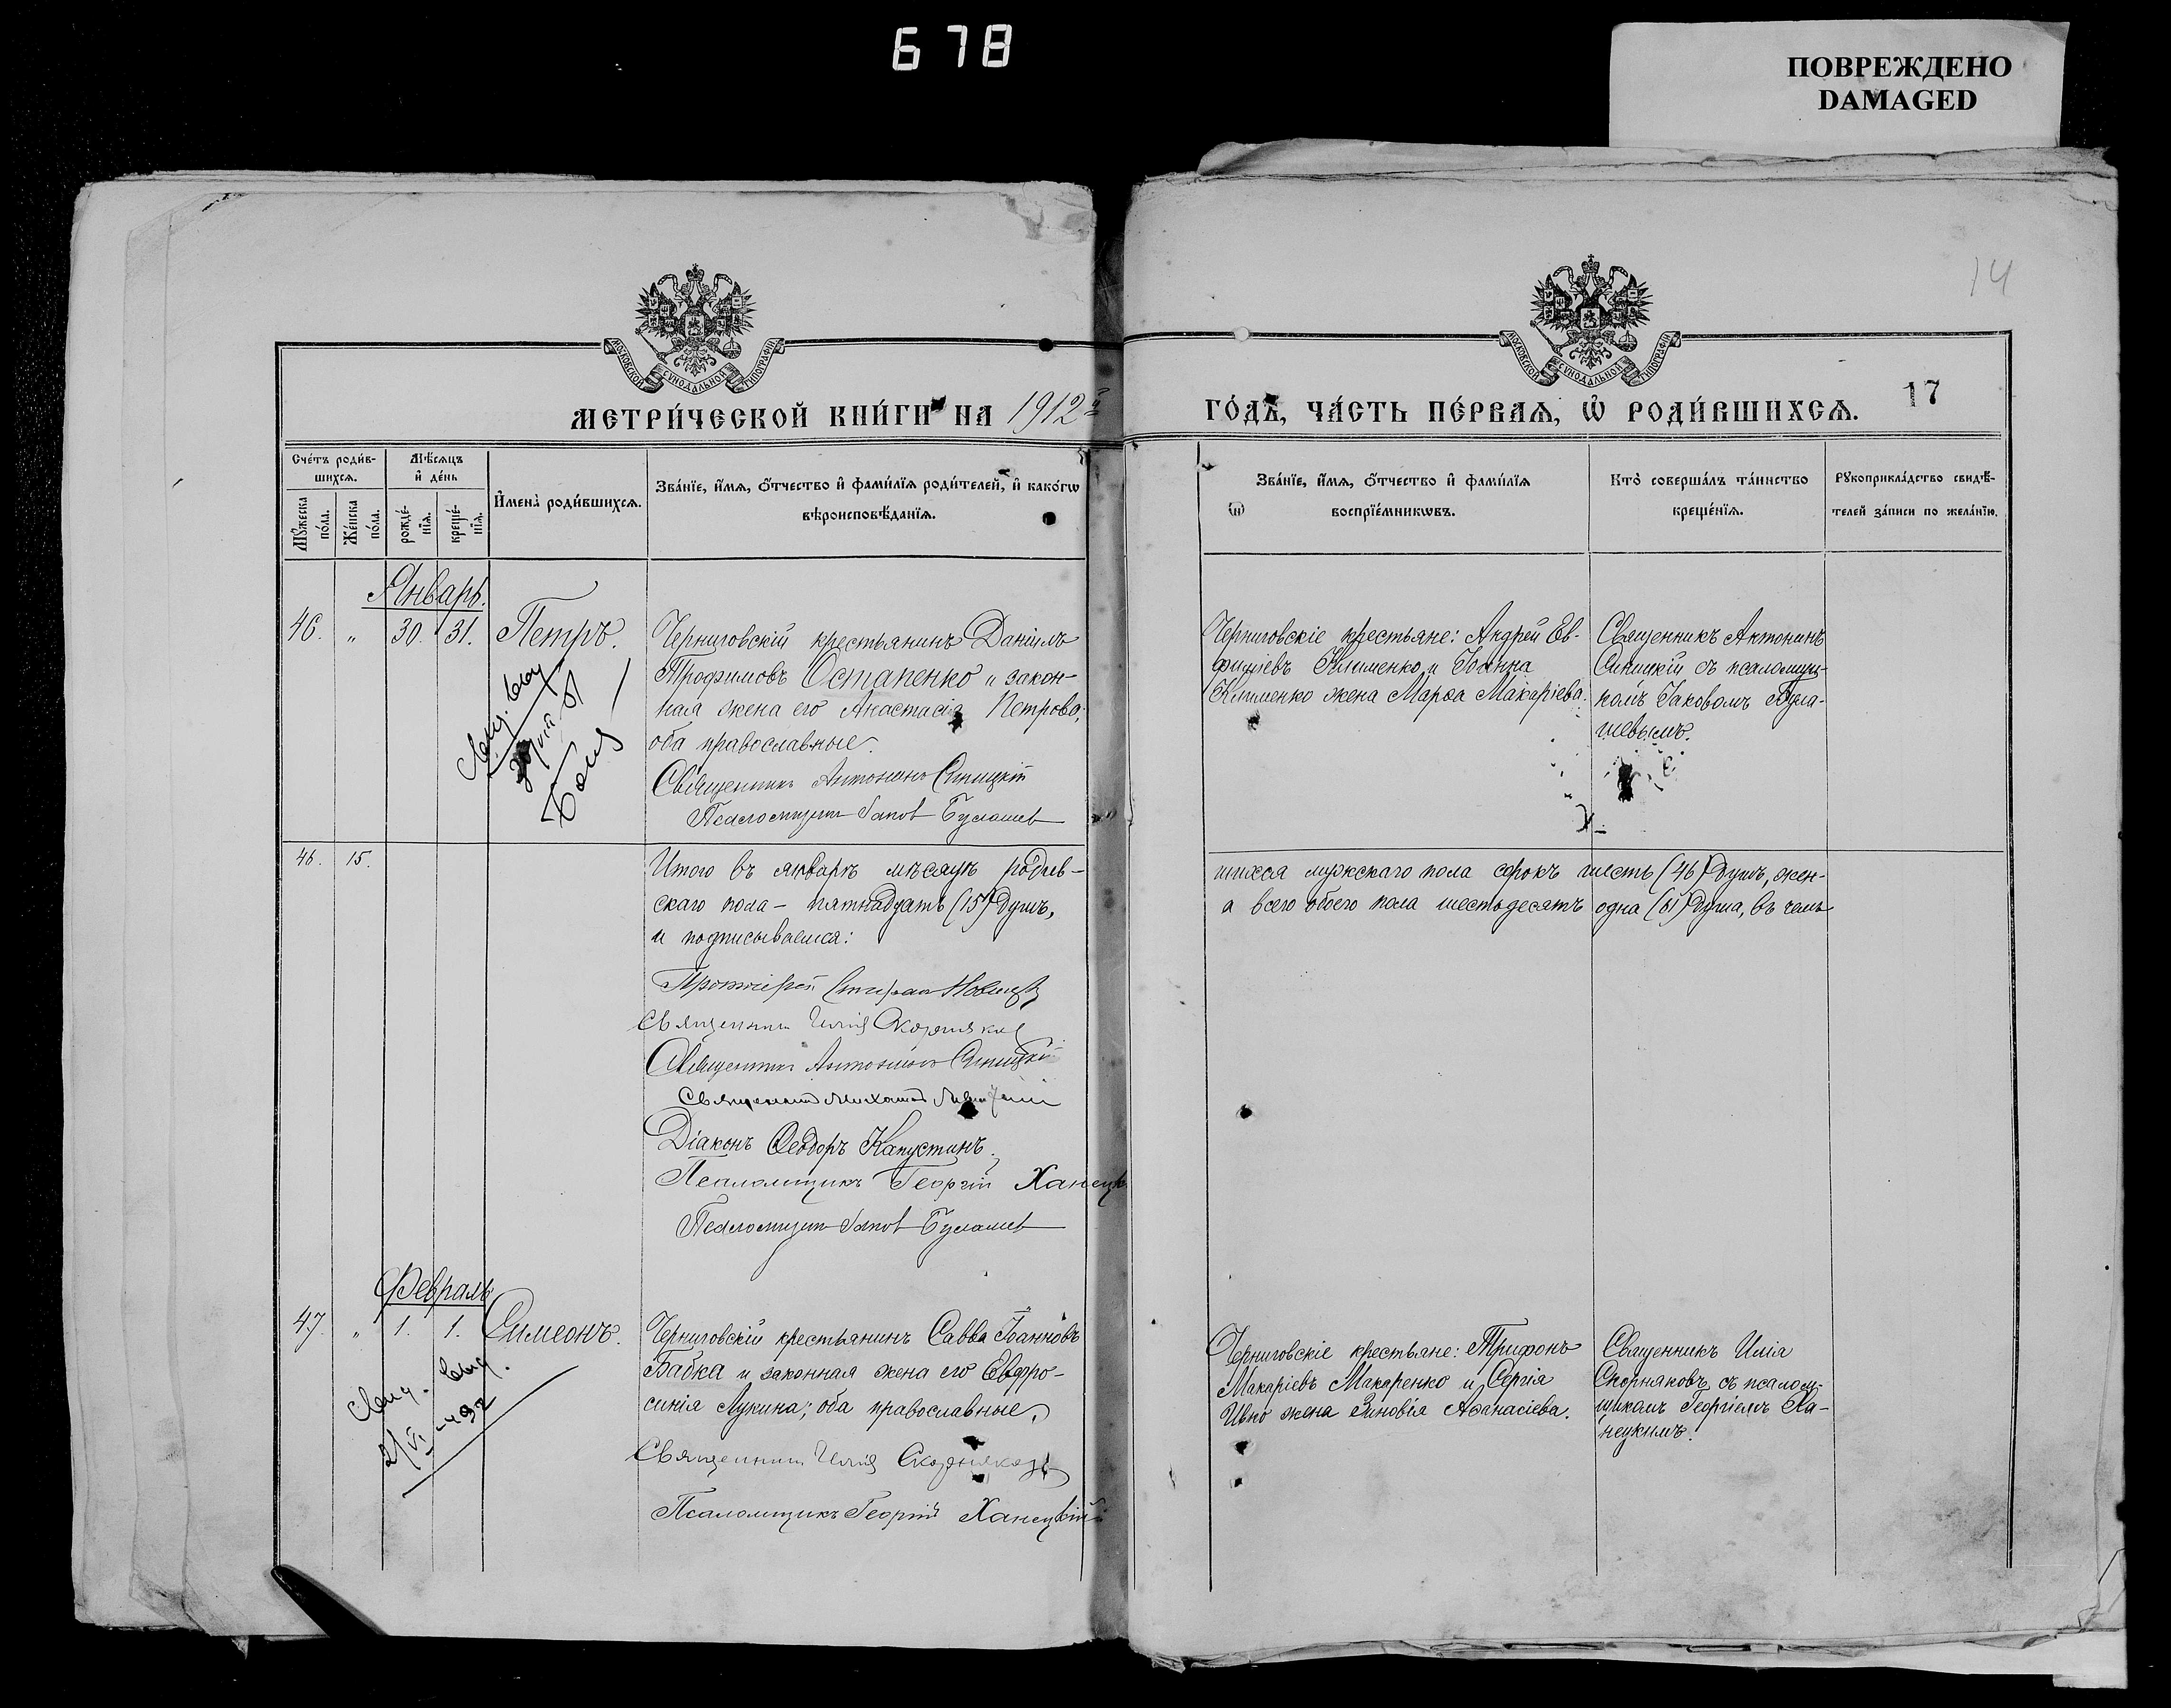 678
ПОВРЕЖДЕНО
DAMAGED
14
МОСКОВСКОЙ СУНОДАЛЬНОЙ ТИПОГРАФІИ
МОСКОВСКОЙ СУНОДАЛЬНОЙ ТИПОГРАФІИ
МЕТРИ́ЧЕСКОЙ КНИ́ГИ НА 1912й
ГО́ДЪ, ЧА́СТЬ ПЕ́РВАѦ, Ѡ РОДИ́ВШИХСѦ.
17
Сче́тъ роди́в-
шихсѧ.
Мѣ́сѧцъ
и҆ де́нь
Мꙋ́жеска
по́ла.
Же́нска
по́ла.
рожде́-
нїѧ.
креще́-
нїѧ.
И҆мена̀ роди́вшихсѧ.
Зва́нїе, и҆́мѧ, ѻ҆́тчество и҆ фами́лїѧ роди́телей, и҆ како́гѡ
вѣроисповѣ́данїѧ.
Зва́нїе, и҆́мѧ, ѻ҆́тчество и҆ фами́лїѧ
воспрїе́мникѡвъ.
Кто̀ соверша́лъ та́инство
креще́нїѧ.
Рꙋкоприкла́дство свидѣ́-
телей за́писи по жела́нїю.
Январь.
46. " 30. 31. Петръ.
Черниговскій крестьянинъ Даніилъ
Трофимовъ Остапенко и закон-
ная жена его Анастасія Петрова,
оба православные.
Священникъ Антонинъ Синицкій
Псаломщикъ Іаковъ Булашев
Черниговскіе крестьяне: Андрей Ев-
фиміевъ Клименко и Іоанна
Клименко жена Марѳа Макаріева.
Священникъ Антонинъ
Синицкій съ псаломщи-
комъ Іаковомъ Була-
шевымъ.
46. 15.
Итого въ январѣ мѣсяцѣ родив-
скаго пола - пятнадцать (15) душъ,
и подписываемся:
шихся мужскаго пола сорокъ шесть (46) душъ, жен-
а всего обоего пола шестьдесятъ одна (61) душа, въ чемъ
Протоіерей
Священник Илія Скорняков
Священникъ Антонинъ Синицкій
Священникъ Михаил
Діаконъ Ѳеодоръ Капустинъ.
Псаломщикъ Георгій Ханецк
Псаломщикъ Іаков Булашев
Февраль
47. " 1. 1. Симеонъ.
Черниговскій крестьянинъ Савва Іоанновъ
Бабка и законная жена его Евфро-
синія Лукина; оба православные.
Священник Илія Скорняковъ
Псаломщикъ Георгій Ханецкій
Черниговскіе крестьяне: Трифонъ
Макаріевъ Макаренко и Сергія
Ивко жена Зиновія Аѳанасіева.
Священникъ Илія
Скорняковъ съ псалом-
щикомъ Георгіемъ Ха-
нецкимъ.